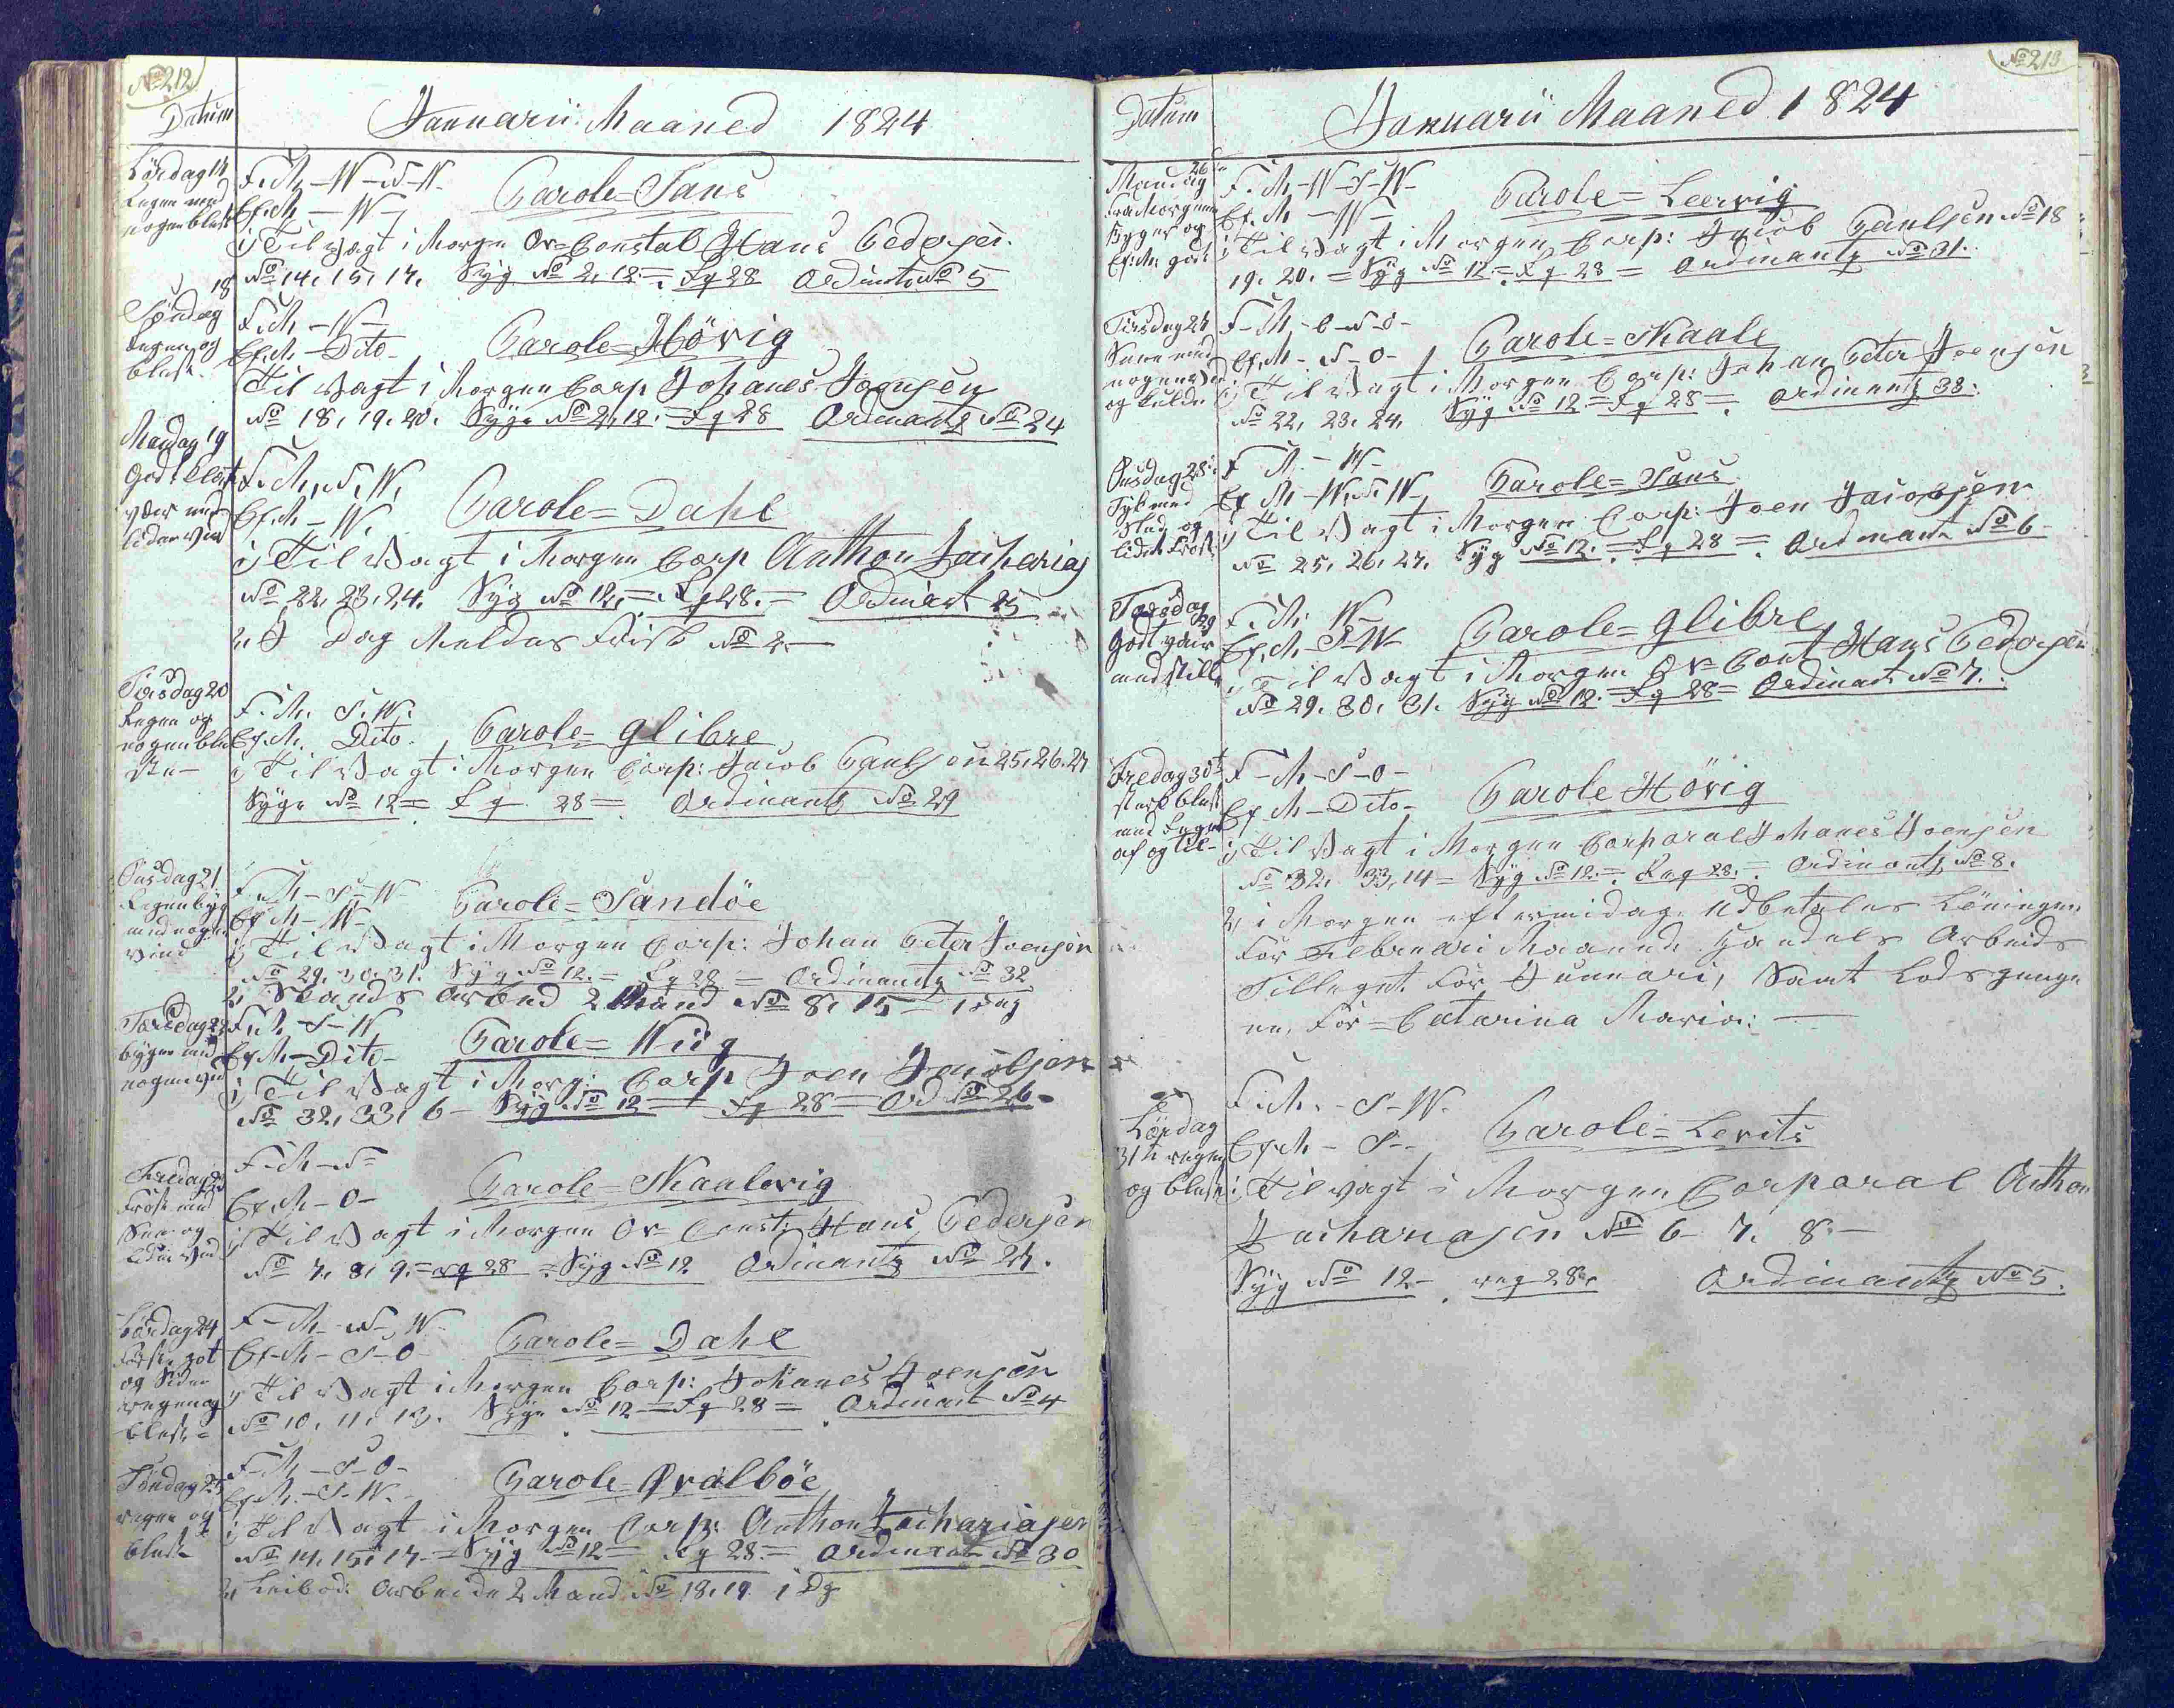 No 212
Datum
Januarii Maaned 1824
Lördag 17
Regen med
nogen blest
F.M. - W - N - W -
Parole = Sans
Ef.M - W -
1) Til Vagt i Morgen Or = Constab Hans Pedersen.
No 14, 15, 17, Syg No 2, 12 = Rq 28 Ordinants No 5
18
Söndag
Regen og
blest.
F.M. - W -
Ef.M. - Dito -
Parole = Hövig
Til Vagt i Morgen Corp Johanes Joensen
No 18, 19, 20, Syge No 2, 12. = Rq 28 Ordinants No 24
Mandag 19
Godt
vær med
liden Vind
F.M., N, W,
Parole = Dahl
Ef.M - W.
1) Til Vagt i Morgen Corp Anthon Zacharias
No 22, 23, 24. Syg No 12, = Rq 28. = Ordinants 25
2) I Dag Meldes Frisk No 2 -
Tirsdag 20
Regen og
nogen ble
ste -
F.M. S. W.
Ef.M. Dito.
Parole = Glibre
1) Til Vagt i Morgen Corp: Jacob Paulsen 25, 26, 27
Syge No 12 = Rq 28 = Ordinants No 29
Onsdag 21
Regen byg
med nogen
Vind
F.M. - S - W
Parole = Sandöe
Ef.M - W -
1) Til Vagt i Morgen Corp: Johan Peter Joensen
No 29, 30, 31. Syg No 12. = Rq 28 = Ordinants No 32
2) Stands Arbed 2 Mand No 8, 15 - 1 Dag
Torsdag 22
byger med
nogen Vind
F.M - S - W,
Ef.M - Dito -
Parole = Wiig
1) Til Vagt i Morg: Corp Joen Jacobsen
No 32, 33, 6 - Syg No 12 = Rq 28 = Ord No 26 -
Fredag 23
Frost med
Snee og
liden Vind
F.M - N -
Ef.M - O -
Parole = Skaalevig
1) Til Vagt i Morgen Or = Const: Hans Pedersen
No 7, 8, 9, = rq 28 = Syg No 12 Ordinants No 27.
Lördag 24
Först got
og Siden
regen og
blest =
F - M - N - W -
Ef.M - S - O
Parole = Dahl
1) Til Vagt i Morgen Corp: Johanes Joensen
No 10, 11, 13. Syge No 12 = Rq 28 = Ordinants No 4
Söndag 25
regen og
blest
F.M. - S - O -
Ef.M. - S. W. -
Parole = Qvalböe
1) Til Vagt i Morgen Corp: Anthon Zachariasen
No 14, 15, 17. = Syg No 12 = Rq 28. = Ordinants No 30
2) Arbeide 2 Mand No 18, 19 1 Dg
No 213
Datum
Januarii Maaned 1824
Mandag 26
Fra Morgenen
byger og
Ef.M. godt
F.M - W - S - W -
Parole = Leervig
Ef.M - W -
1) Til Vagt i Morgen Corp: Jacob Paulsen No 18
19, 20. = Syg No 12 = Rq 28 = Ordinants No 31.
Tirsdag 27
Snee med
nogen Vind
og kulde
F - M - N - O -
Ef.M - N - O -
Parole = Skaale
1) Til Vagt i Morgen Corp: Johan Peter Joensen
No 22, 23, 24, Syg No 12 = Rq 28 = Ordinants 33.
Onsdag 28
Tyk med
Slud og
liden Frost
F M. - W -
Ef M - W. N. W
Parole = Sans
1) Til Vagt i Morgen Corp: Joen Jacobsen
No 25, 26, 27, Syg No 12. = Rq 28 = Ordinants No 6 -
Torsdag
29
godt veir
med stille
F.M. W -
Ef.M - S - W -
Parole = Glibre
1) Til Vagt i Morgen Or = Const Hans Pedersen
No 29, 30, 31. Syg No 12. = Rq 28 = Ordinants No 7.
Fredag 30
sterk blest
med Regen
af og til -
F - M - S - O -
Ef.M - Dito -
Parole Hövig
1) Til Vagt i Morgen Corporal Johanes Joensen
No 32, 33, 14 = Syg No 12 = Req 28. = Ordinants No 8.
2) i Morgen eftermidag Udbetales Löningen
For Februari Maaned, Handels Arbeids
Tilleget For Januari, Samt Lodspenge
ne, For = Catarina Maria: -
Lördag
31te regen
og blest
F.M. - S - W.
Ef.M - S -
Parole =
1) Til Vagt i Morgen Corporal Anthon
Zachariasen No 6 - 7, 8. -
Syg No 12 - req 28. Ordinants No 5.